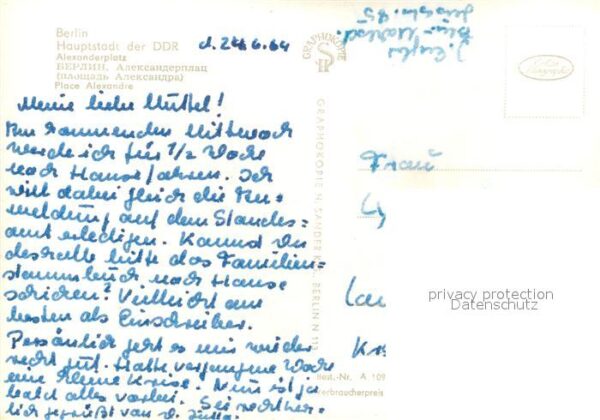 Berlin
Hauptstadt der DDR
Alexanderplatz
БЕРЛИН. Александерплац
(площадь Александра)
Place Alexandre
d. 24.6.64
Meine liebe Muttel!
Am kommenden Mittwoch
werde ich für 1/2 Woche
nach Hause fahren. Ich
will dabei gleich die An-
meldung auf dem Standes-
amt erledigen. Kannst Du
deshalb bitte das Familien-
stammbuch nach Hause
schicken? Vielleicht am
besten als Einschreiben.
Persönlich geht es mir wieder
recht gut. Hatte vergangene Woche
eine kleine Krise. Nun ist ja
bald alles vorbei. Sei recht herz-
lich gegrüßt von d. Jutta.
GRAPHOKOPIE
GRAPHOKOPIE H. SANDER KG., BERLIN N 113
Best.-Nr. A 109
verbraucherpreis
Frau
privacy protection
Datenschutz